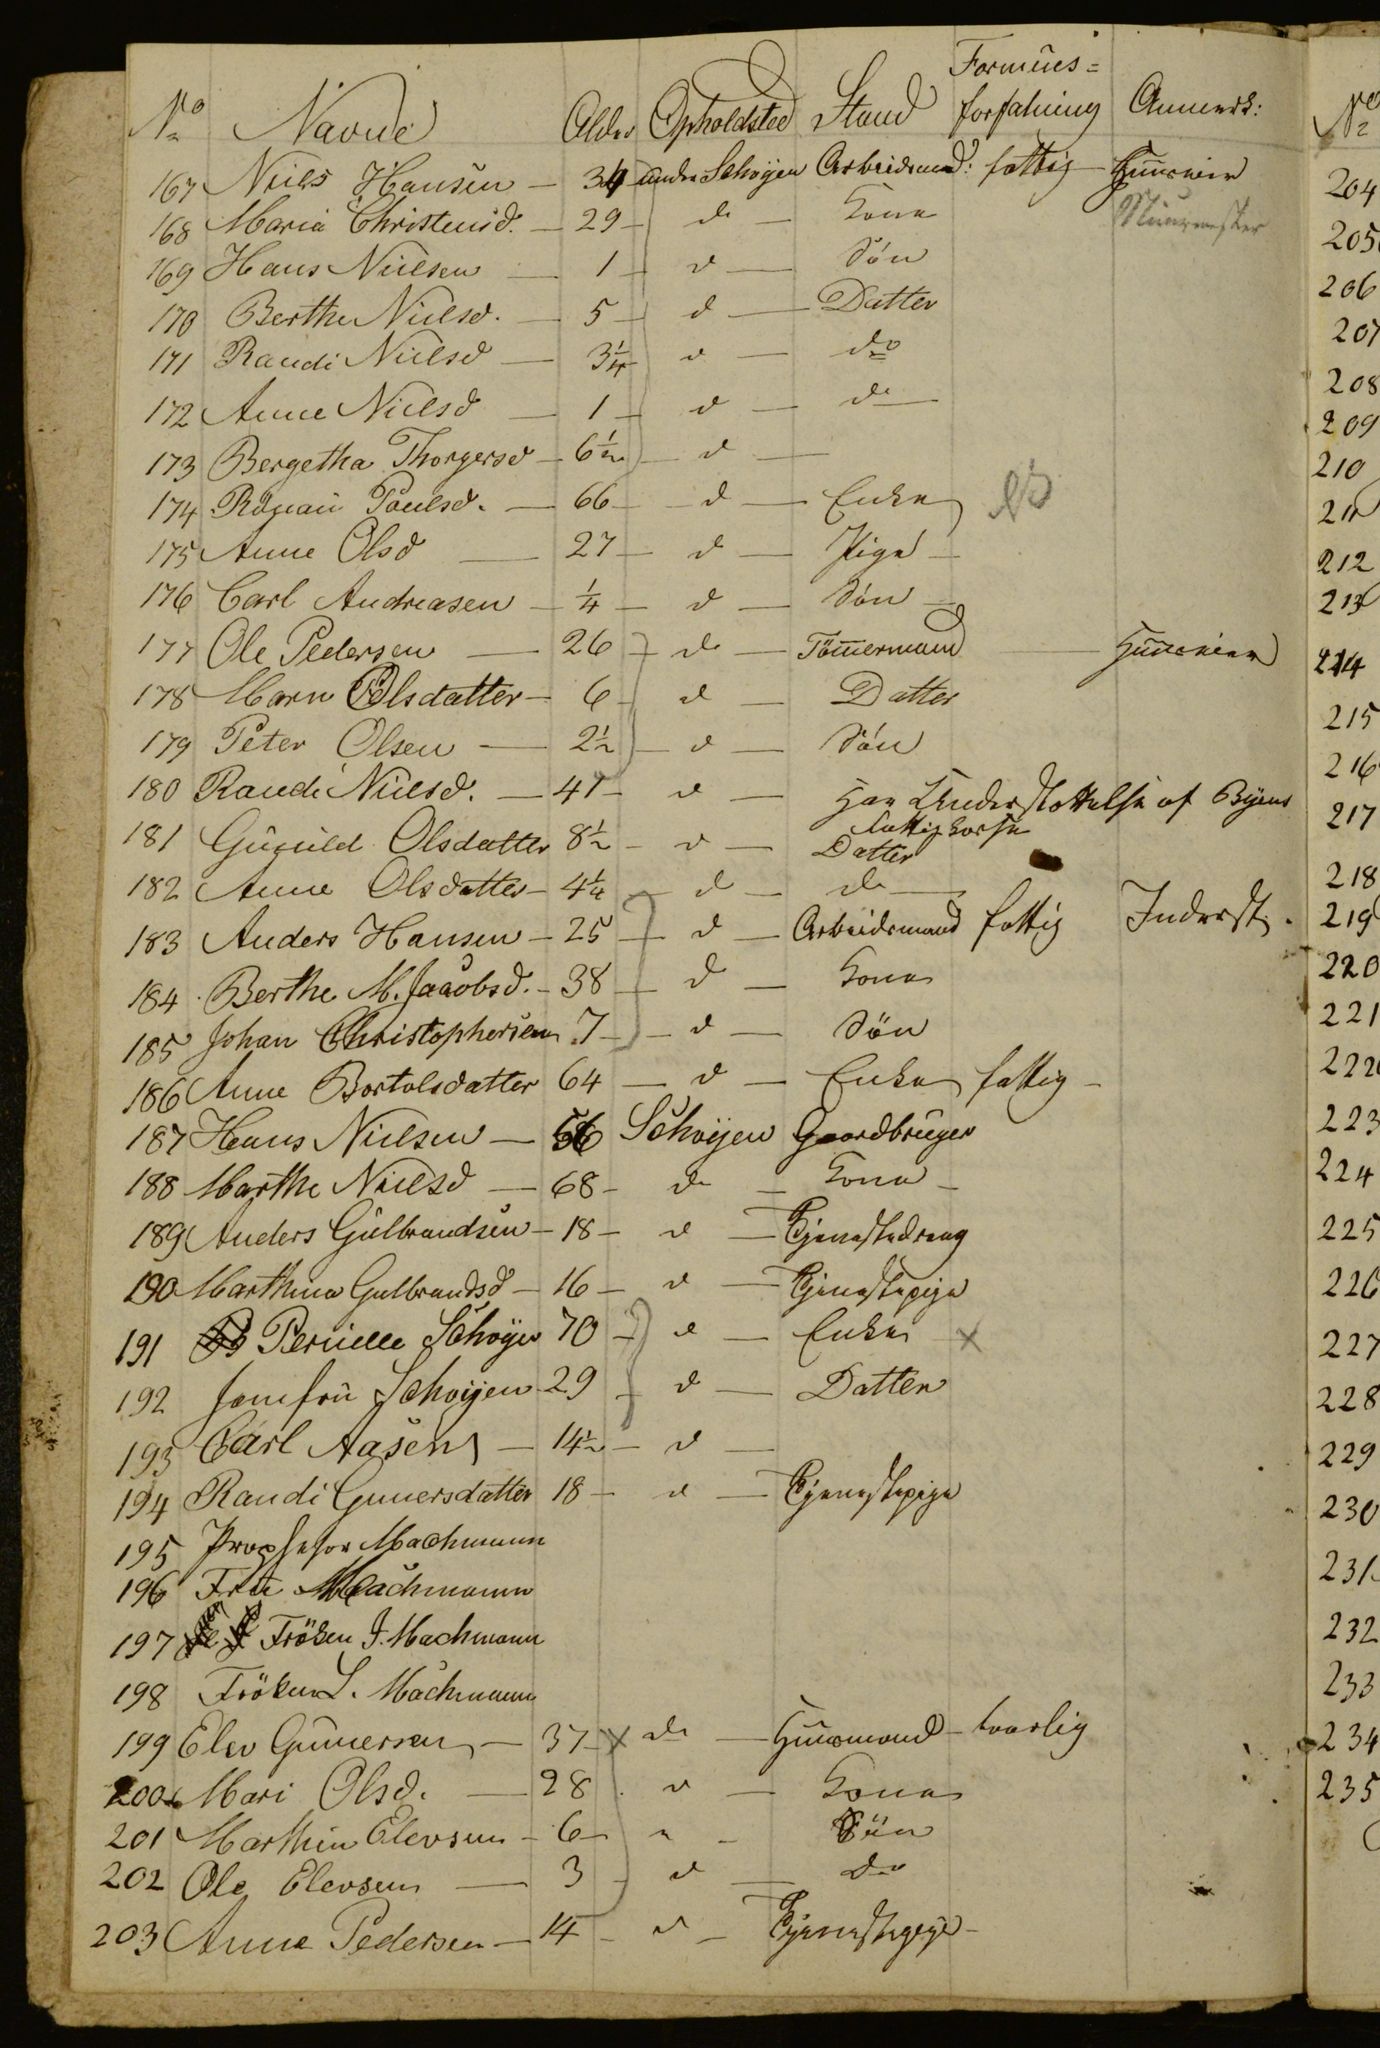 Formues=
No Navne Alder Opholdsted Stand forfatning Anmerk:
167 Niels Hansen - 34 - under Schøyen Arbeidsmand: fattig - Huuseier
168 Maria Christensd. - 29 - do - Kone
169 Hans Nielsen - 1 - d - Søn
170 Berthe Nielsd. - 5 - d - Datter
171 Randi Nielsd - 3¼ d - do
172 Anne Nielsd - 1 - d - do
173 Bergetha Thorgersd - 6½ - d -
174 Poulsd. - 66 - d - Enke
175 Anne Olsd - 27 - d - Pige -
176 Carl Andreasen - ¼ - d - Søn -
177 Ole Pedersen - 26 - do - Tömmermand - Huuseier
178 Maren Olsdatter - 6 - d - Datter
179 Peter Olsen - 2½ - d - Søn
180 Randi Nielsd. - 41 - d - Har Understöttelse af Byens
fattigkasse
181 Gunild Olsdatter 8½ - d - Datter
182 Anne Olsdatter - 4¼ - d - do -
183 Anders Hansen - 25 - d - Arbeidsmand fattig Inderst.
184 Berthe M. Jacobsd. - 38 - d - Kone
185 Johan Christophersen 7 - d - Søn
186 Anne Bortolsdatter 64 - d - Enke fattig -
187 Hans Nielsen - 56 Schøyen Gaardbruger
188 Marthe Nielsd - 68 - do - Kone -
189 Anders Gulbrandsen - 18 - d - Tjenestedreng
190 Marthina Gulbrandsd - 16 - d - Tjenestepige
191 Pernille Schøyen 70 - d - Enke - x
192 Jomfru Schøyen 29 - d - Datter
193 Carl Aasen - 14½ - d -
194 Randi Gunersdatter 18 - d - Tjenestepige
195 Prophesor Machmann
196 Frue Machmann
197 Fröken J. Machmann
198 Fröken L. Machmann
199 Elev Gunersen - 37 - x do - Huusmand - taarlig
200 Mari Olsd. - 28 d - Kone
201 Marthin Elevsen - 6 - " - Søn
202 Ole Elevsen - 3 - d - do
203 Anne Pedersen - 14 - d - Tjenestepige -
No
204
205
206
207
208
209
210
211
212
213
214
215
216
217
218
219
220
221
222
223
224
225
226
227
228
229
230
231
232
233
234
235